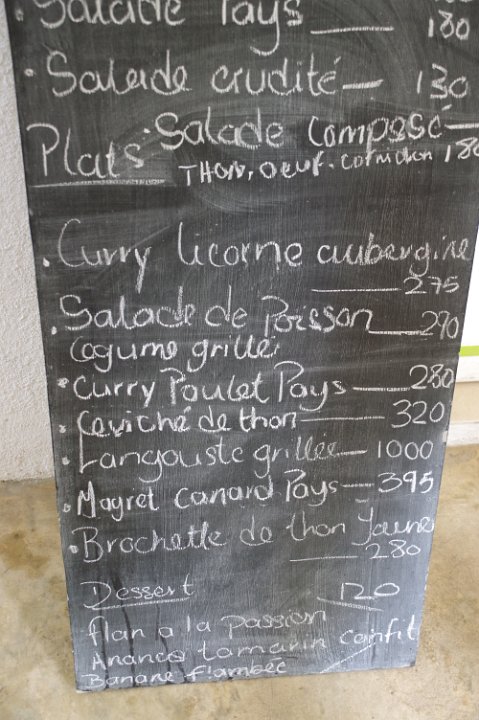 Salade Pays ___ 180
· Salade crudité — 130
· Salade composé —
Plats
THON, oeuf. cornichon 180
· Curry licorne aubergine
___ 275
· Salade de Poisson __ 290
legume grillé
· Curry Poulet Pays — 280
· Ceviché de thon — 320
· Langouste grillée — 1000
· Magret canard Pays — 395
· Brochette de thon Jaune
___ 280
Dessert 120
flan a la passion
Ananas tamarin confit
Banane flambée